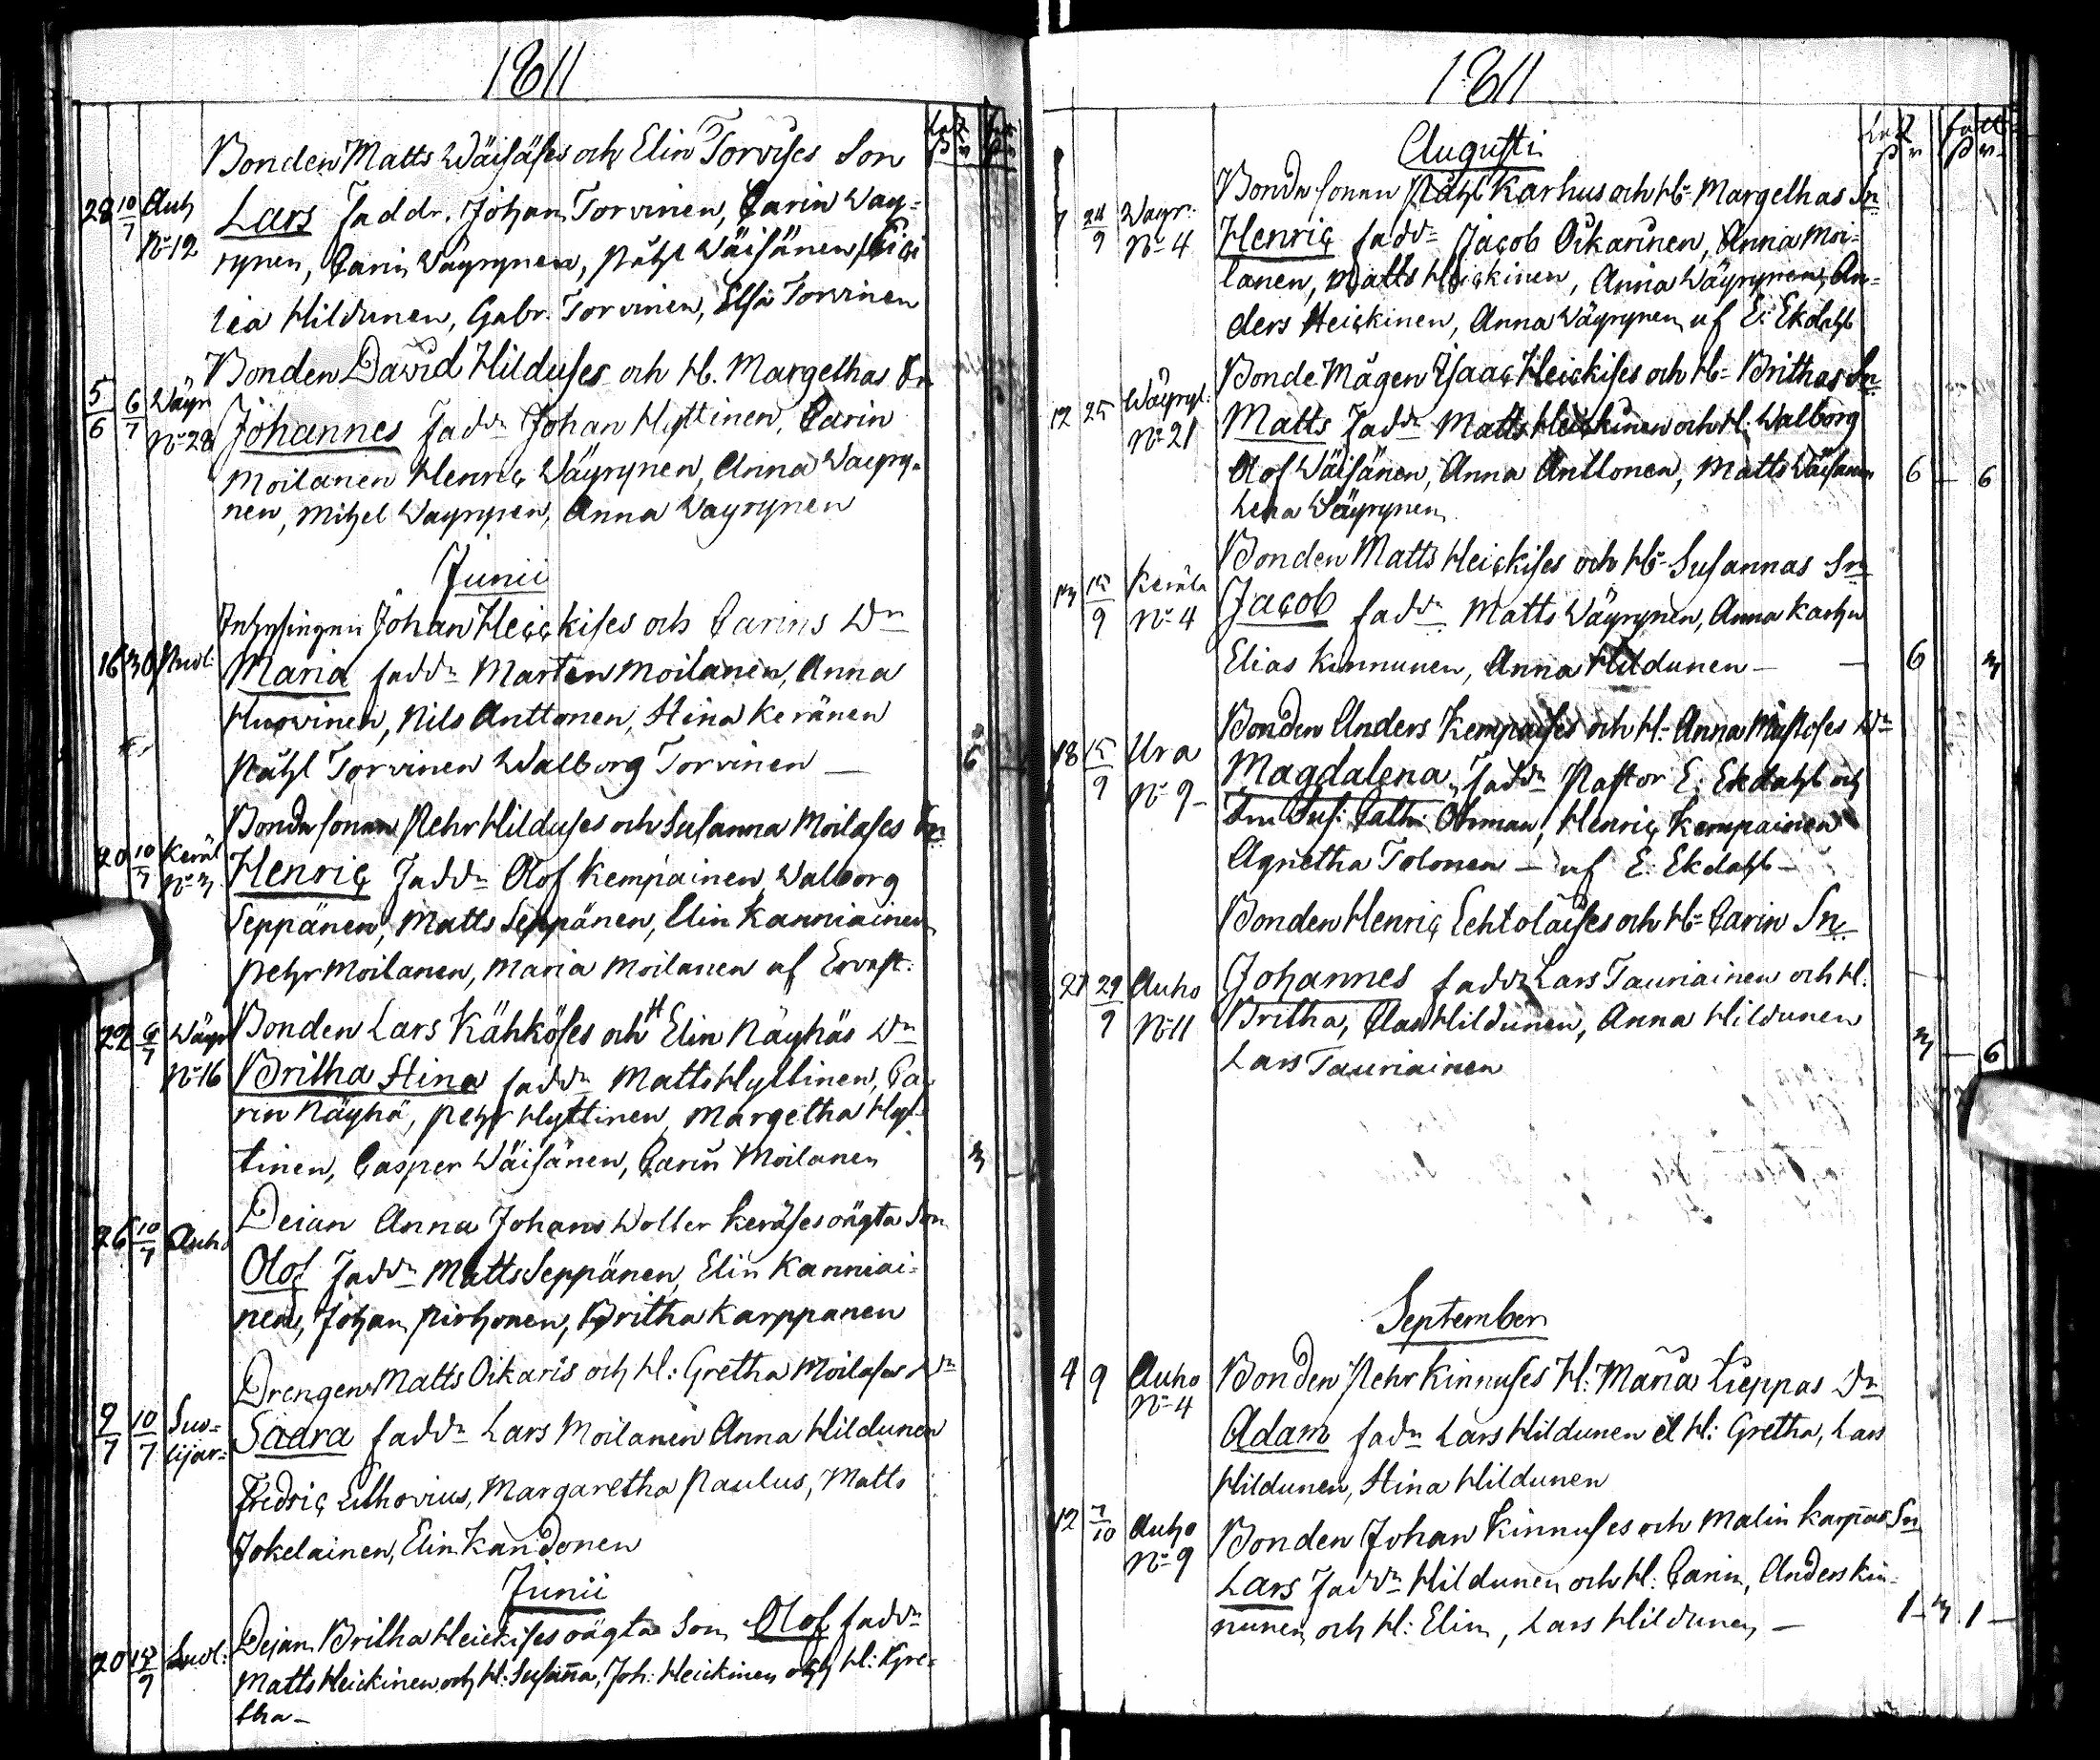 1811
Bonden Matts Wäisäses och Elin Torvises Son
28 10/7 Auh No 12
Lars Faddr. Johan Torvinen, Carin Wäy=
rynen, Carin Wäyrynen, Påhl Wäisänen,
lia Hildunen, Gabr. Torvinen, Elsa Torvinen
Bonden David Hilduses och H. Margethas Sn
5/6 6/7 Wäyr No 28
Johannes Faddr Johan Hyttinen, Carin
Moilanen Henric Wäyrynen, Anna Wäyry=
nen, Michel Wäyrynen, Anna Wayrynen
Junii
Inhysingen Johan Heickises och Carins Dr
16 30
Maria faddr Marten Moilanen, Anna
Huovinen, Nils Anttonen, Stina Keränen
Påhl Torvinen Walborg Torvinen — 6
Bonde sonen Pehr Hilduses och Susanna Moilases Sn
20 10/7 Keräl No 3
Henric Faddr Olof Kempainen, Walborg
Seppänen, Matts Seppänen, Elin Kanniainen
Pehr Moilanen, Maria Moilanen af
Bonden Lars Kähköses och H Elin Näyhäs Dr
22 6/7 Wäyr No 16
Britha Stina faddr Matts Hyttinen, Ca=
rin Näyhä, Pehr Hyttinen, Margetha Hyt=
tinen, Casper Wäisänen, Carin Moilanen 3
Deian Anna Johans Dotter Keräses oägta Son
26 10/7 Auho
Olof Faddr Matts Seppänen, Elin Kanniai=
nen, Johan Pirhonen, Britha Karppanen
Drengen Matts Oikaris och H: Gretha Moilases Dr
9/7 10/7 Suo= lijär:
Saara faddr Lars Moilanen Anna Hildunen
Fredric Elhovius, Margaretha Paulus, Matts
Jokelainen, Elin Kandonen
Junii
Dejan Britha Heickises oägta Son Olof faddr
20 15/9
Matts Heickinen och H: Susanna, Joh: Heickinen och H: Gre=
tha —
1811
Augusti
Bonde sonen Påhl Karhus och H: Margethas Sn
7 24/9 Wäyr: No 4
Henric faddr Jacob Oikarinen, Anna Moi=
lanen, Matts Heickinen, Anna Wäyrynen, An=
ders Heickinen, Anna Wäyrynen af E: Ekdahl
Bonde Mågen Isaac Heickises och H: Brithas Sn
12 25 Wäyryl: No 21
Matts Faddr Matts Heickinen och H: Walborg
Olof Wäisänen, Anna Anttonen, Matts Wäisänen 6 — 6
Lena Wäyrynen
Bonden Matts Heickises och H: Susannas Sn
13 15/9 Kerälä No 4
Jacob faddr Matts Wäyrynen, Anna Karhu
Elias Kinnunen, Anna Hildunen — — 6 3
Bonden Anders Kempaises och H: Anna Dr
18 15/9 Ura No 9
Magdalena, Faddr Pastor E: Ekdahl och
Fru Sus: Cath: Öhman, Henric Kempainen
Agnetha Tolonen — af E: Ekdahl —
Bonden Henric Lehtolaises och H: Carin Sn
27 29/9 Auho No 11
Johannes faddr Lars Tauriainen och H:
Britha, Clas Hildunen, Anna Hildunen
Lars Tauriainen 3 — 6
September
4 9 Auho No 4
Bonden Pehr Kinnuses H: Maria Lieppas Dr
Adam fadr Lars Hildunen et H: Gretha, Lars
Hildunen, Stina Hildunen
12 7/10 Auho No 9
Bonden Johan Kinnuses och Malin Karpas Sn
Lars Faddr Hildunen och H: Carin, Anders Kin=
nunen och H: Elin, Lars Hildunen — 1 — 3 1 —